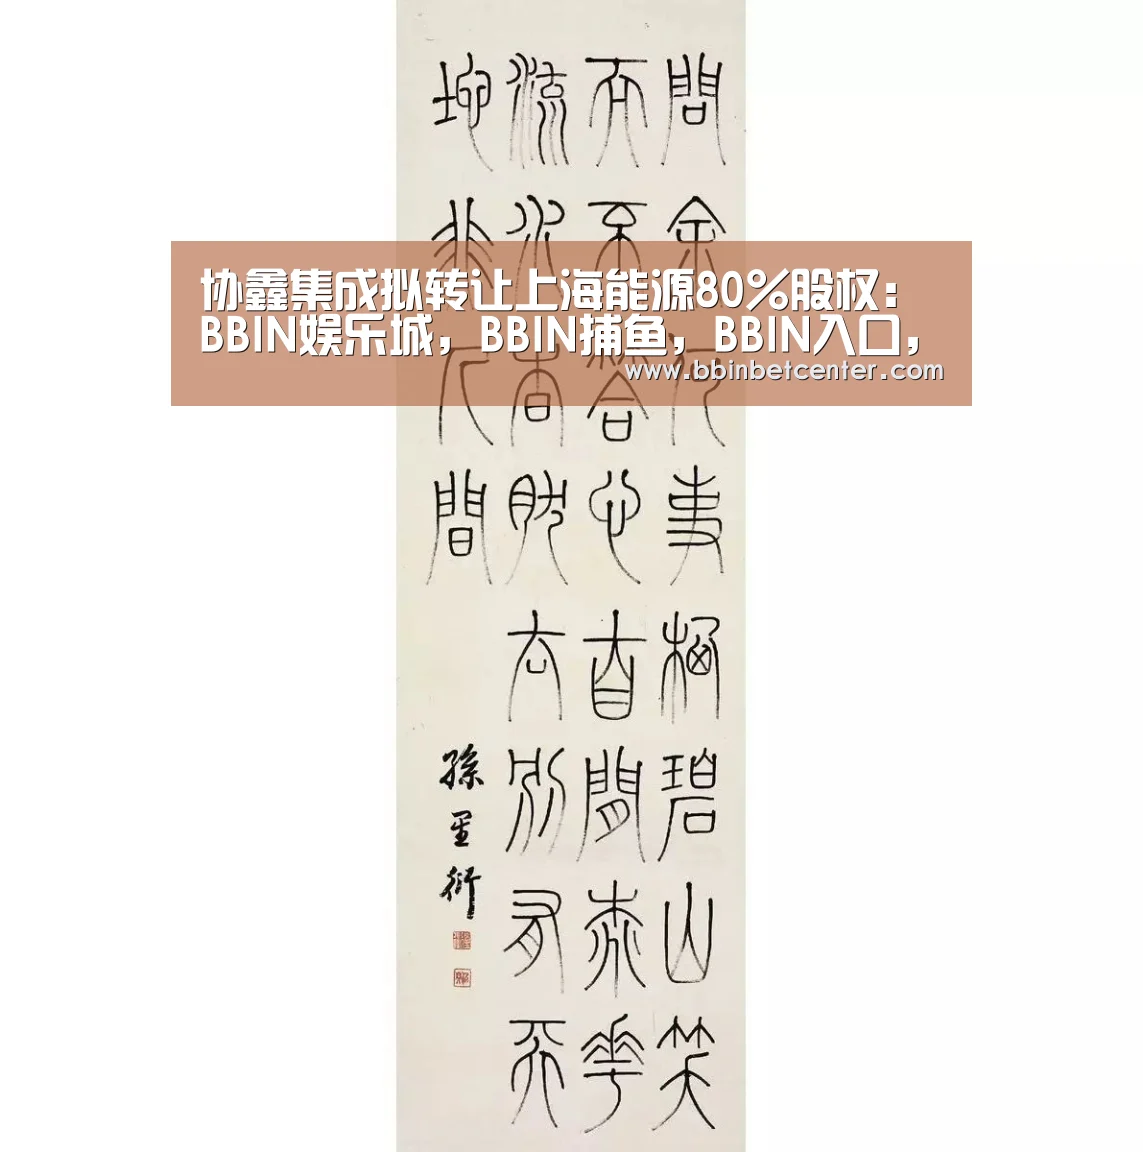 协鑫集成拟转让上海能源80%股权：
BBIN娱乐城，BBIN捕鱼，BBIN入口，
www.bbinbetcenter.com
問余何事栖碧山笑
而不答心自閒桃花
流水杳然去別有天
地非人間
孫星衍